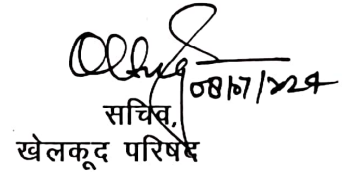 08/07/2024
सचिव,
खेलकूद परिषद